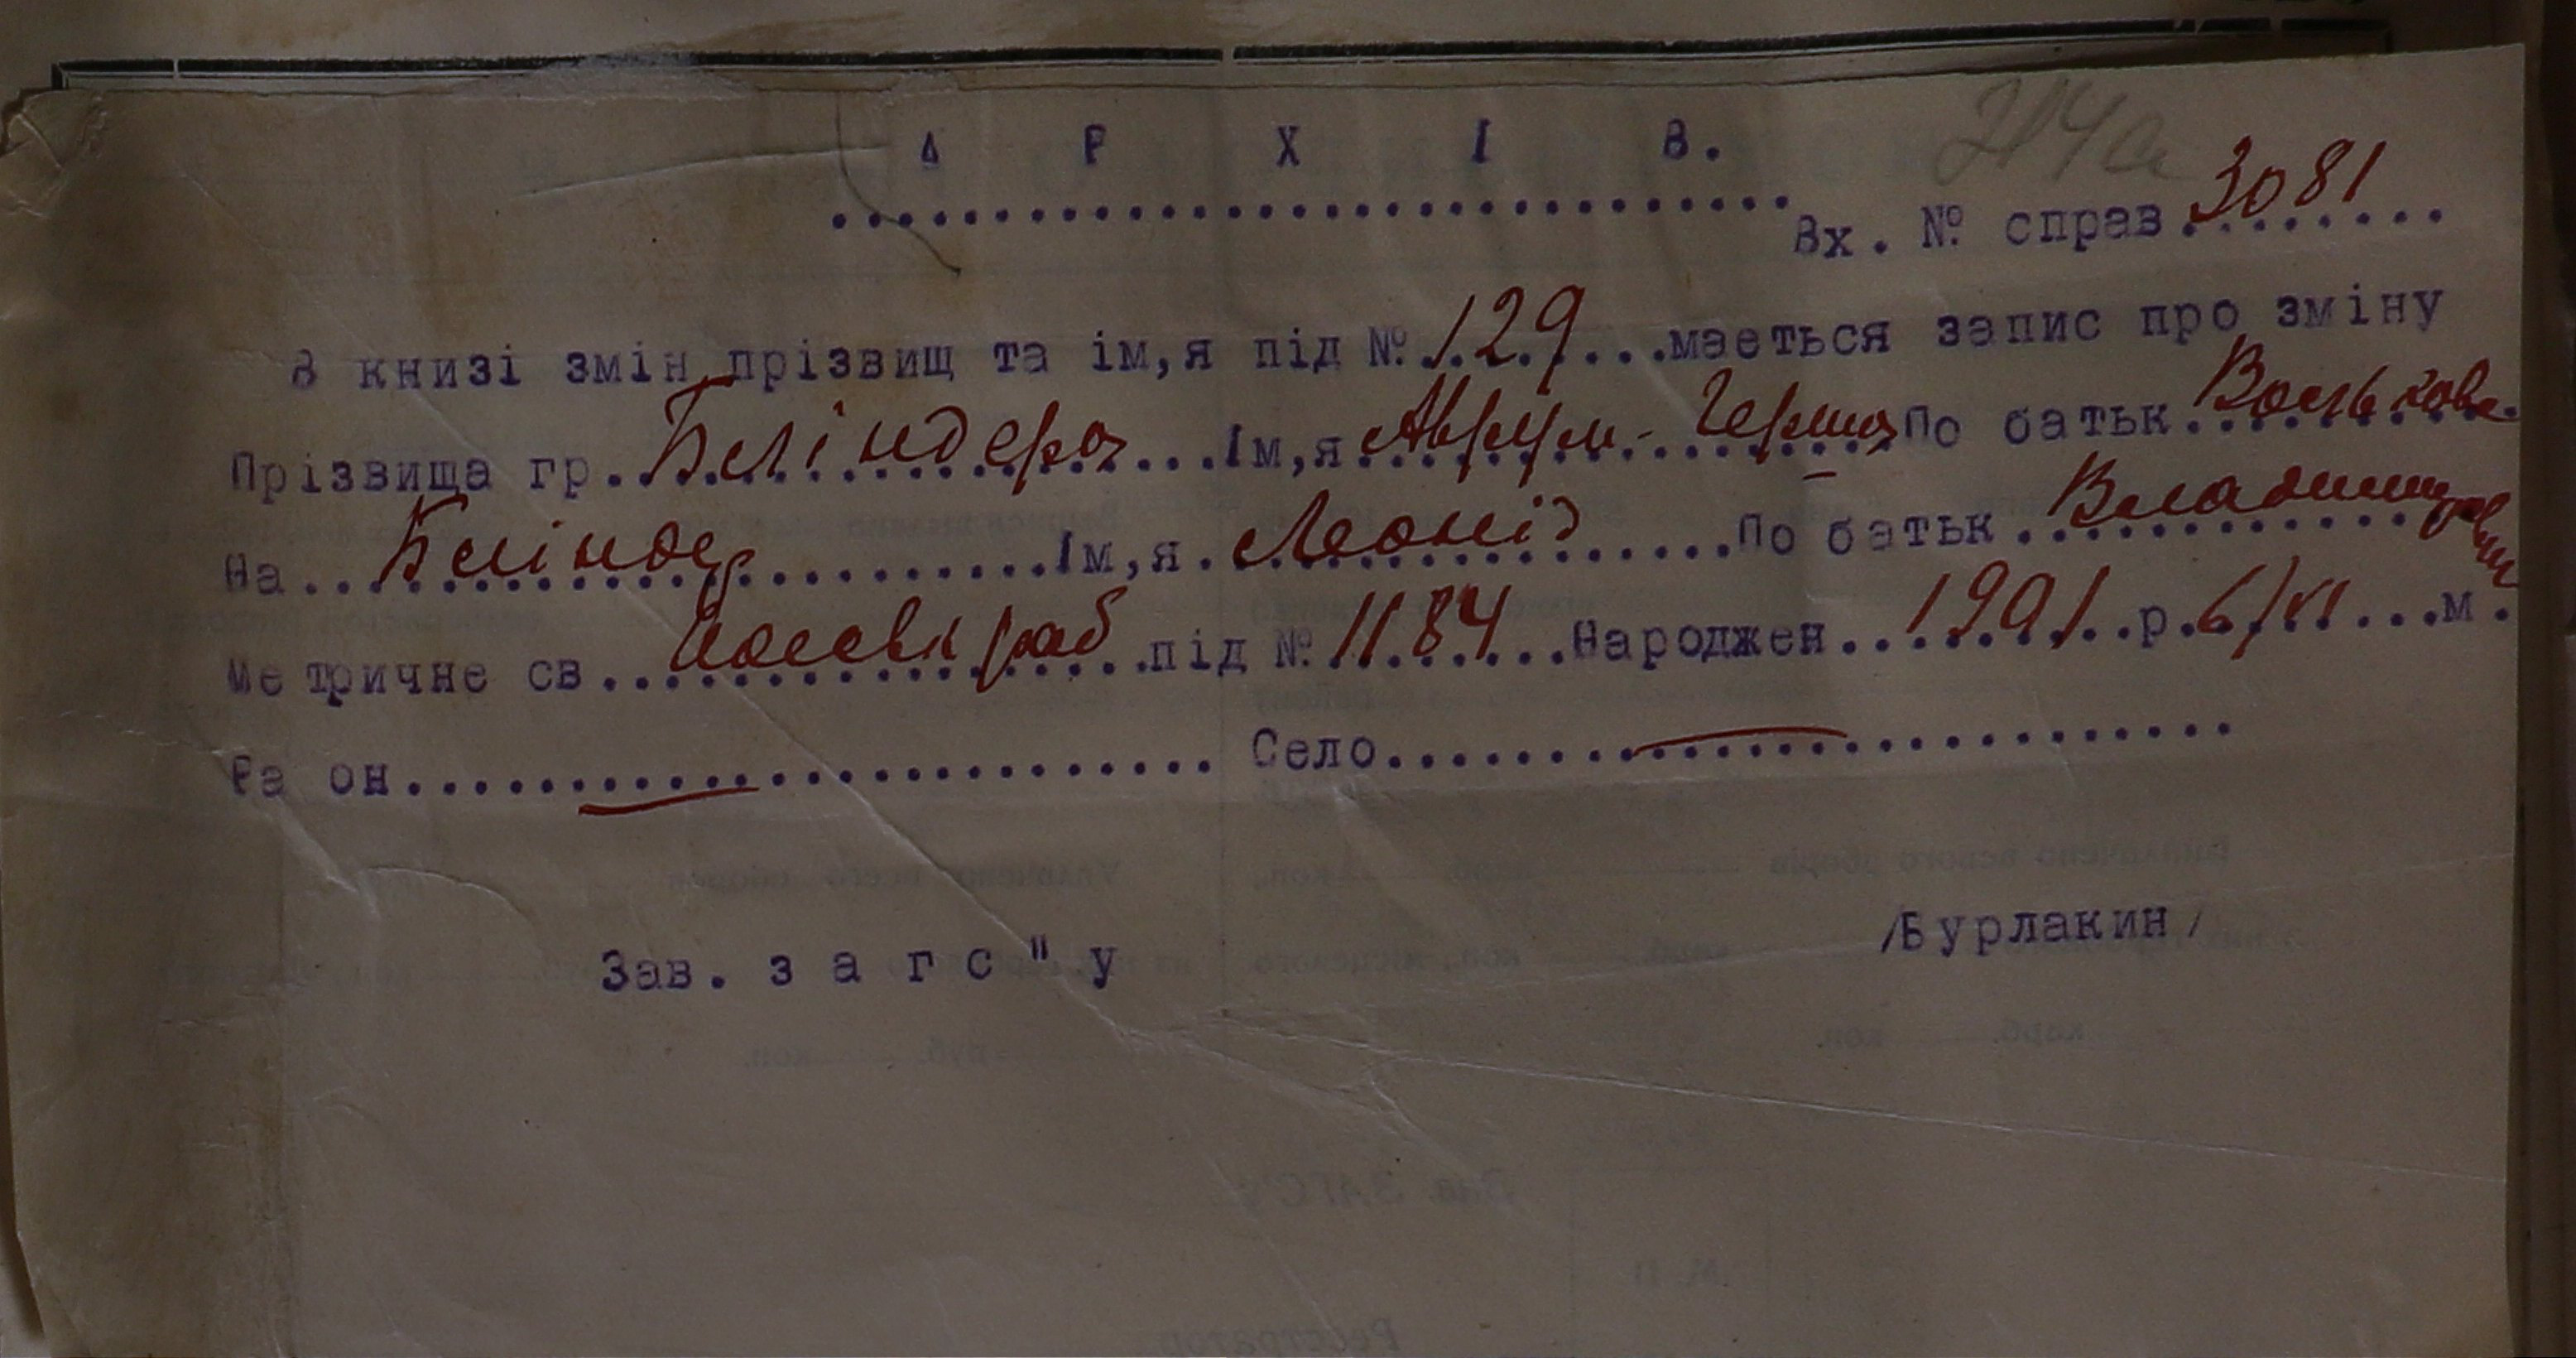 А Р Х І В.
214а
Вх. № справ 3081
В книзі змін прізвищ та ім,я під № 129 мається запис про зміну
Прізвища гр. Бліндера Ім,я Аврум-Герша По батьк. Волькове
На Бліндер Ім,я Леонід По батьк Владимирович
Метричне св. під № 1184 Народжен 1901 р. 6/VI м.
Ра он Село
Зав. з а г с " у /Бурлакин/